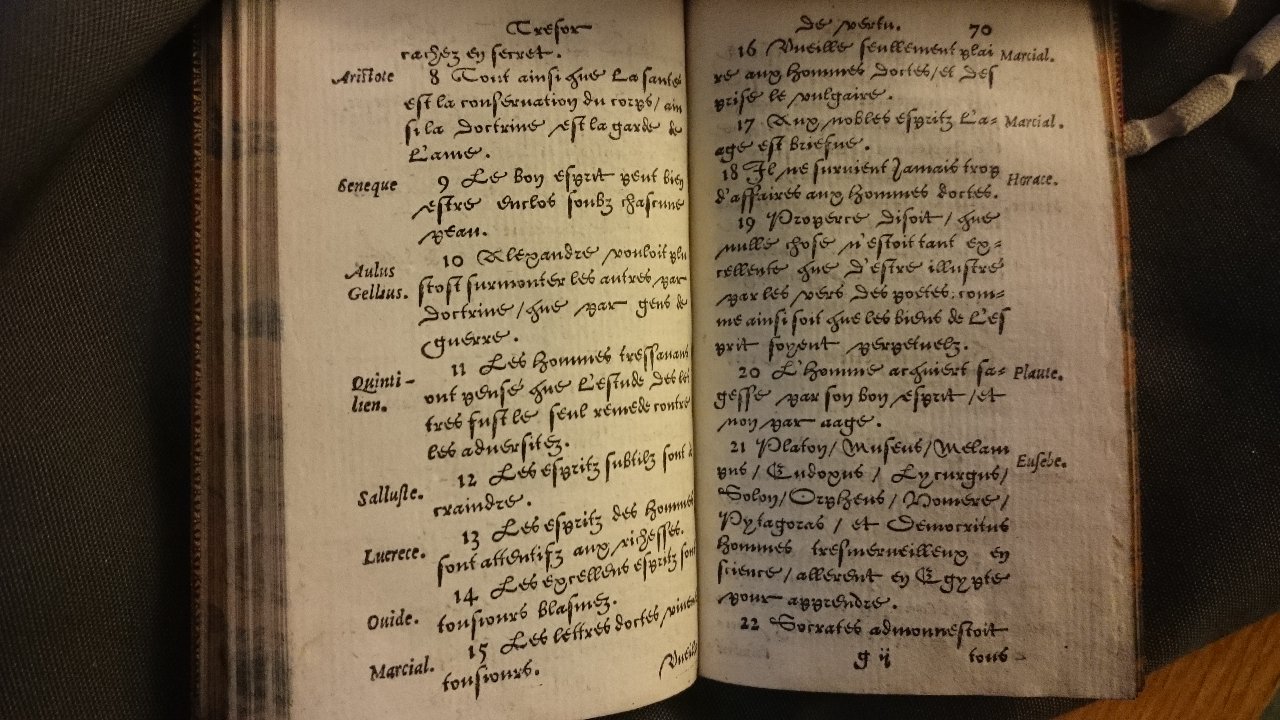 Tresor
cachez en secret.
Aristote 8 Tout ainsi que La santé
est la conservation du corps/ ain
si la doctrine est la garde de
L'ame.
Seneque 9 Le bon esprit peut bien
estre enclos soubz chascune
peau.
10 Alexandre vouloit plu
Aulus
Gellius. stost surmonter les autres par
doctrine/ que par gens de
guerre.
11 Les hommes tressavans
Quinti-
lien. ont pensé que L'estude des let
tres fust le seul remede contre
les adversitez.
12 Les espritz subtilz sont à
Salluste. craindre.
13 Les espritz des hommes
Lucrece. sont attentifz aux richesses.
14 Les excellens espritz sont
Ouide. tousiours blasmez.
15 Les lettres doctes vivent
Marcial. tousiours.
Vueille
De vertu. 70
16 Vueille seullement plai Marcial.
re aux hommes doctes/ et des
prise le vulgaire.
17 Aux nobles espritz L'a= Marcial.
age est briefue.
18 Il ne survient Jamais trop
d'affaires aux hommes doctes. Horace.
19 Properce disoit/ que
nulle chose n'estoit tant ex=
cellente que d'estre illustré
par les vers des poetes: com=
me ainsi soit que les biens de L'es
prit soyent perpetuelz.
20 L'homme acquiert sa= Plaute.
gesse par son bon esprit/ et
non par aage.
21 Platon/ Museus/ Melam
pus/ Eudoxus/ Lycurgus/ Eusebe.
Solon/ Orpheus/ Homere/
Pytagoras/ et Democritus
hommes tresmerveilleux en
science/ allerent en Egypte
pour apprendre.
22 Socrates admonnestoit
g ij tous